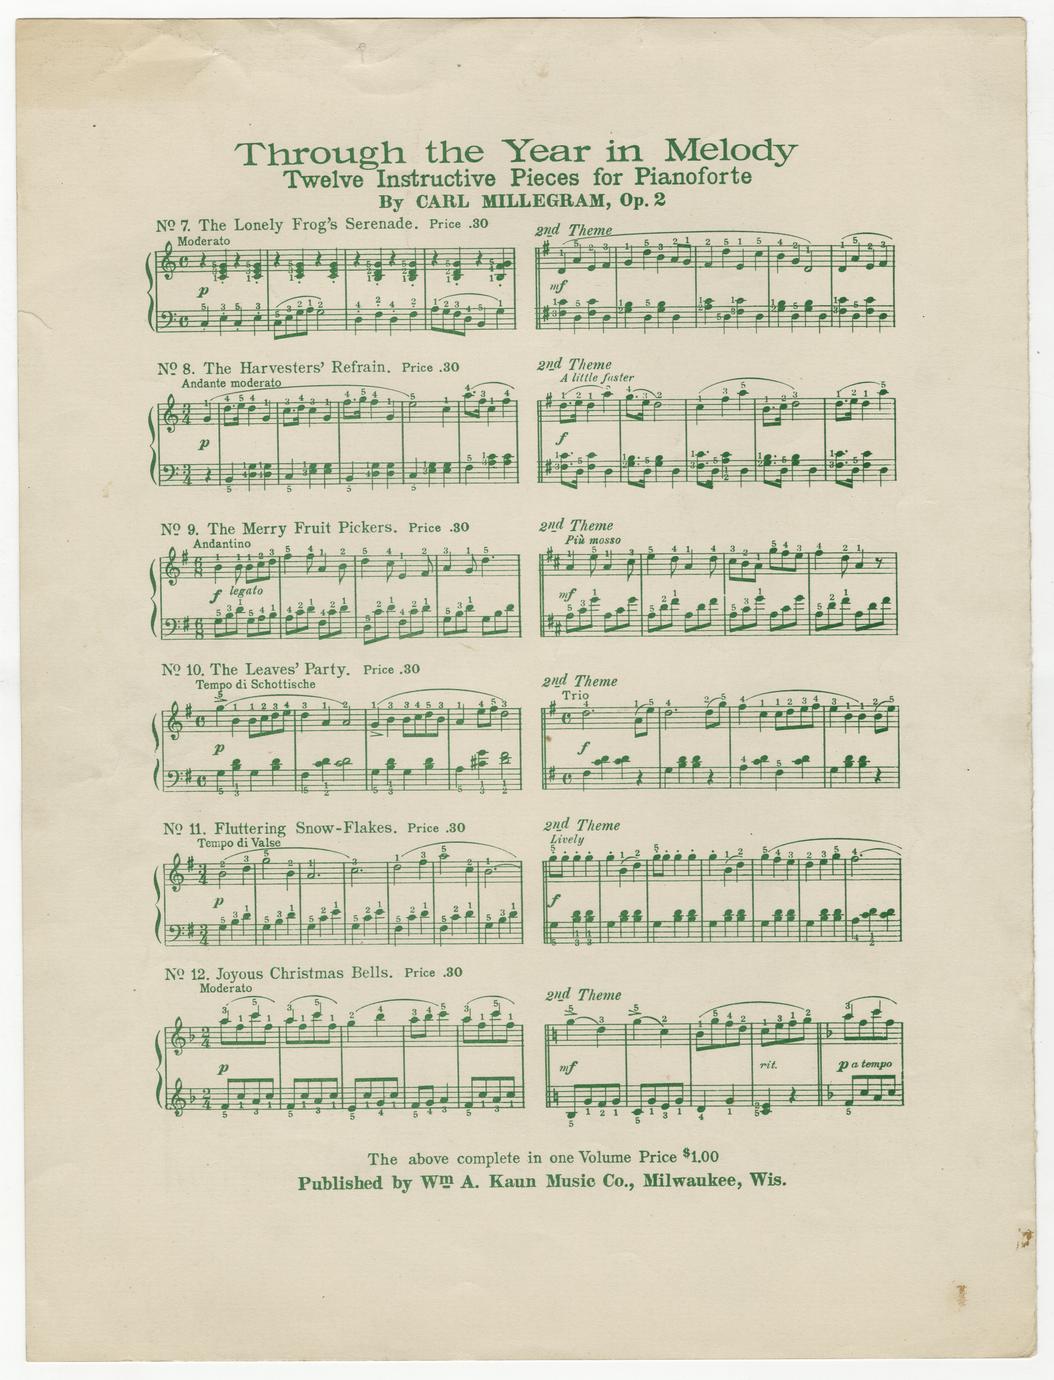 Through the Year in Melody
Twelve Instructive Pieces for Pianoforte
By CARL MILLEGRAM, Op. 2
No 7. The Lonely Frog's Serenade. Price .30
Moderato
p
2nd Theme
mf
No 8. The Harvesters' Refrain. Price .30
Andante moderato
p
2nd Theme
A little faster
f
No 9. The Merry Fruit Pickers. Price .30
Andantino
f legato
2nd Theme
Più mosso
mf
No 10. The Leaves' Party. Price .30
Tempo di Schottische
p
2nd Theme
Trio
f
No 11. Fluttering Snow-Flakes. Price .30
Tempo di Valse
p
2nd Theme
Lively
f
No 12. Joyous Christmas Bells. Price .30
Moderato
p
2nd Theme
mf
rit.
p a tempo
The above complete in one Volume Price $1.00
Published by Wm A. Kaun Music Co., Milwaukee, Wis.